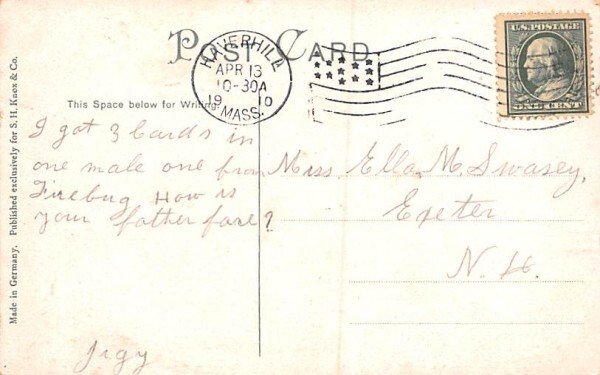 POST CARD
HAVERHILL
APR 13
10-30A
19 10
MASS.
U.S. POSTAGE
ONE CENT
This Space below for Writing.
I got 3 Cards in
one male one from
Firebug How is
your father fare?
Jigy
Miss. Ella M Swasey,
Exeter
N. H.
Made in Germany. Published exclusively for S. H. Knox & Co.